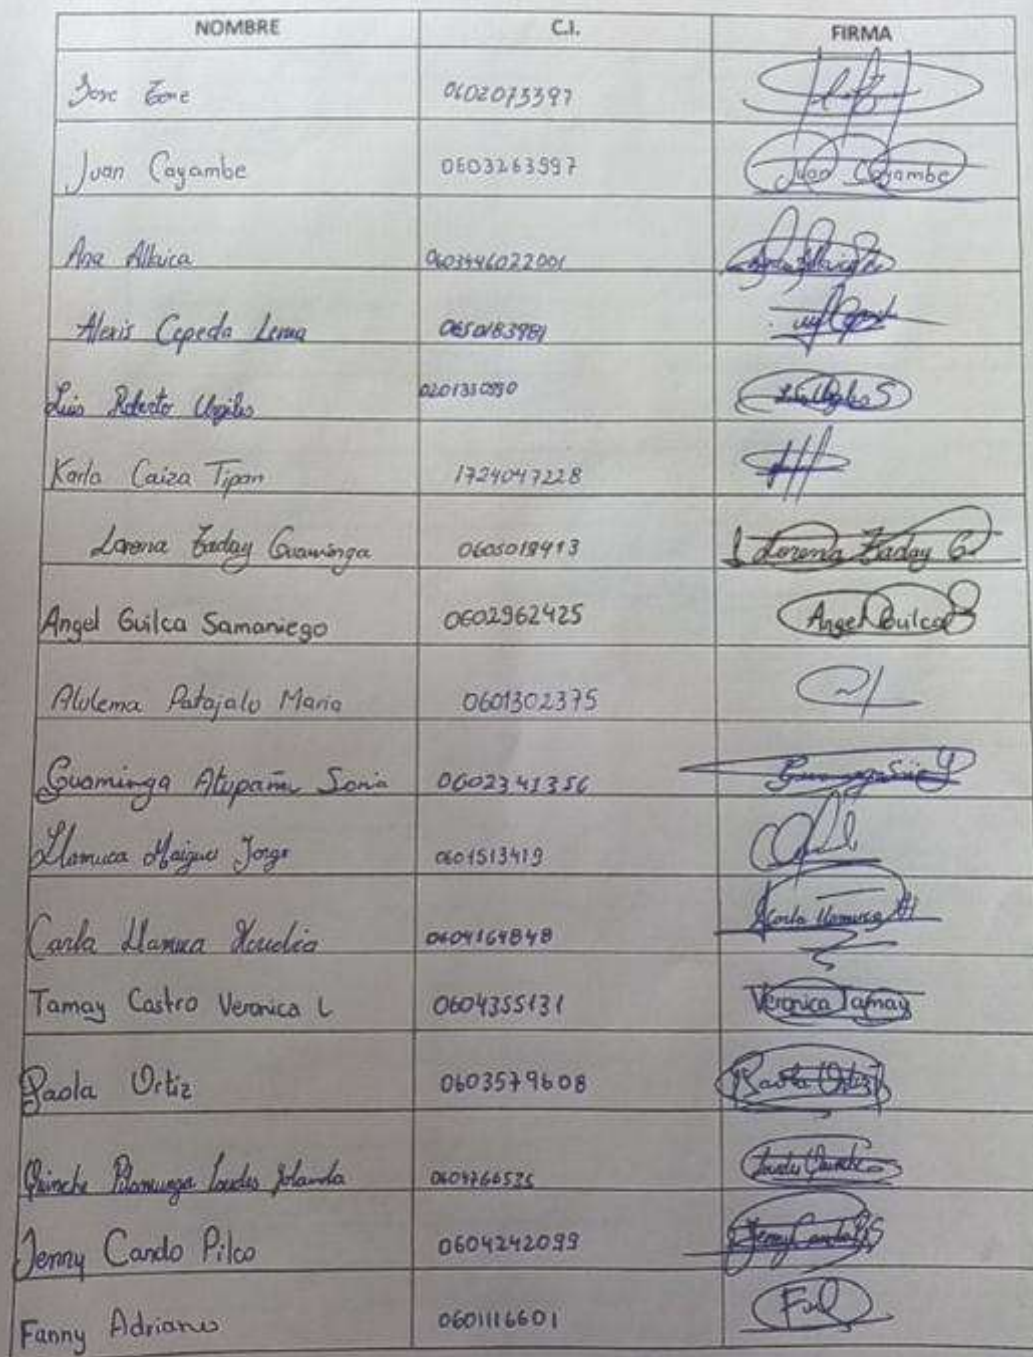 NOMBRE C.I. FIRMA
Jose 0602073397
Juan Cayambe 0603263997 Juan Cayambe
Ana Allauca 0603446022001
Alexis Cepeda Lema 0650183981
Luis Roberto Urgiles 0201330990
Karla Caiza Tipan 1724047228
Lorena Zaday Guaminga 0605019413 Lorena Zaday G
Angel Guilca Samaniego 0602962425 Angel Guilca
Alulema Patajalo Maria 0601302375
Guaminga Atupaña Sonia 0602341356
Llamuca Maigua Jorge 0601513419
Carla Llamuca 0604164848 Carla Llamuca
Tamay Castro Veronica L 0604355131 Veronica Tamay
Paola Ortiz 0603579608 Paola Ortiz
Quinche Pilamunga Yolanda 0604766535
Jenny Cando Pilco 0604242099 Jenny Cando
Fanny Adriano 0601116601